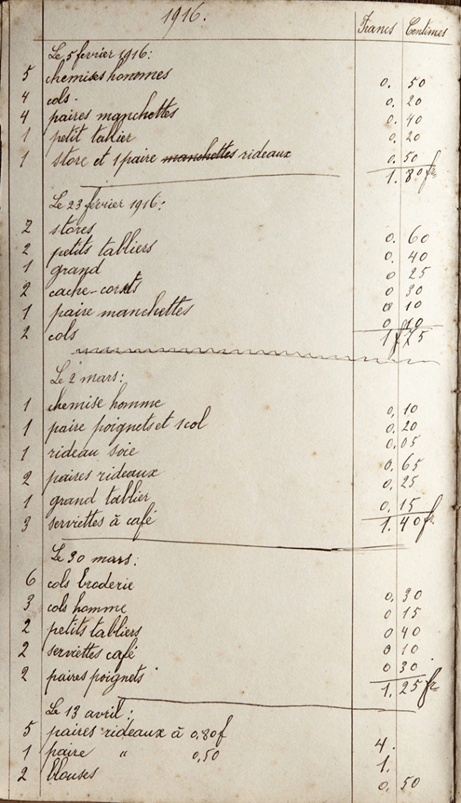 1916. Francs Centimes
Le 5 février 1916:
5 chemises hommes 0. 50
4 cols. 0. 20
4 paires manchettes 0. 40
1 petit tablier 0. 20
1 store et 1 paire manchettes rideaux 0. 50
1. 80 fr
Le 23 février 1916:
2 stores 0. 60
2 petits tabliers 0. 40
1 grand 0 25
2 cache-corsets 0 30
1 paire manchettes 0 10
2 cols 0 10
1 f 75
Le 2 mars:
1 chemise homme 0, 10
1 paire poignets et 1 col 0. 20
1 rideau soie 0. 05
2 paires rideaux 0. 65
1 grand tablier 0. 25
3 serviettes à café 0. 15
1. 40 f.
Le 30 mars:
6 cols broderie 0, 30
3 cols homme 0 15
2 petits tabliers 0 40
2 serviettes café 0 10
2 paires poignets 0 30
1. 25 fr
Le 13 avril:
5 paires rideaux à 0,80 f 4.
1 paire " 0,50 1.
2 blouses 0. 50